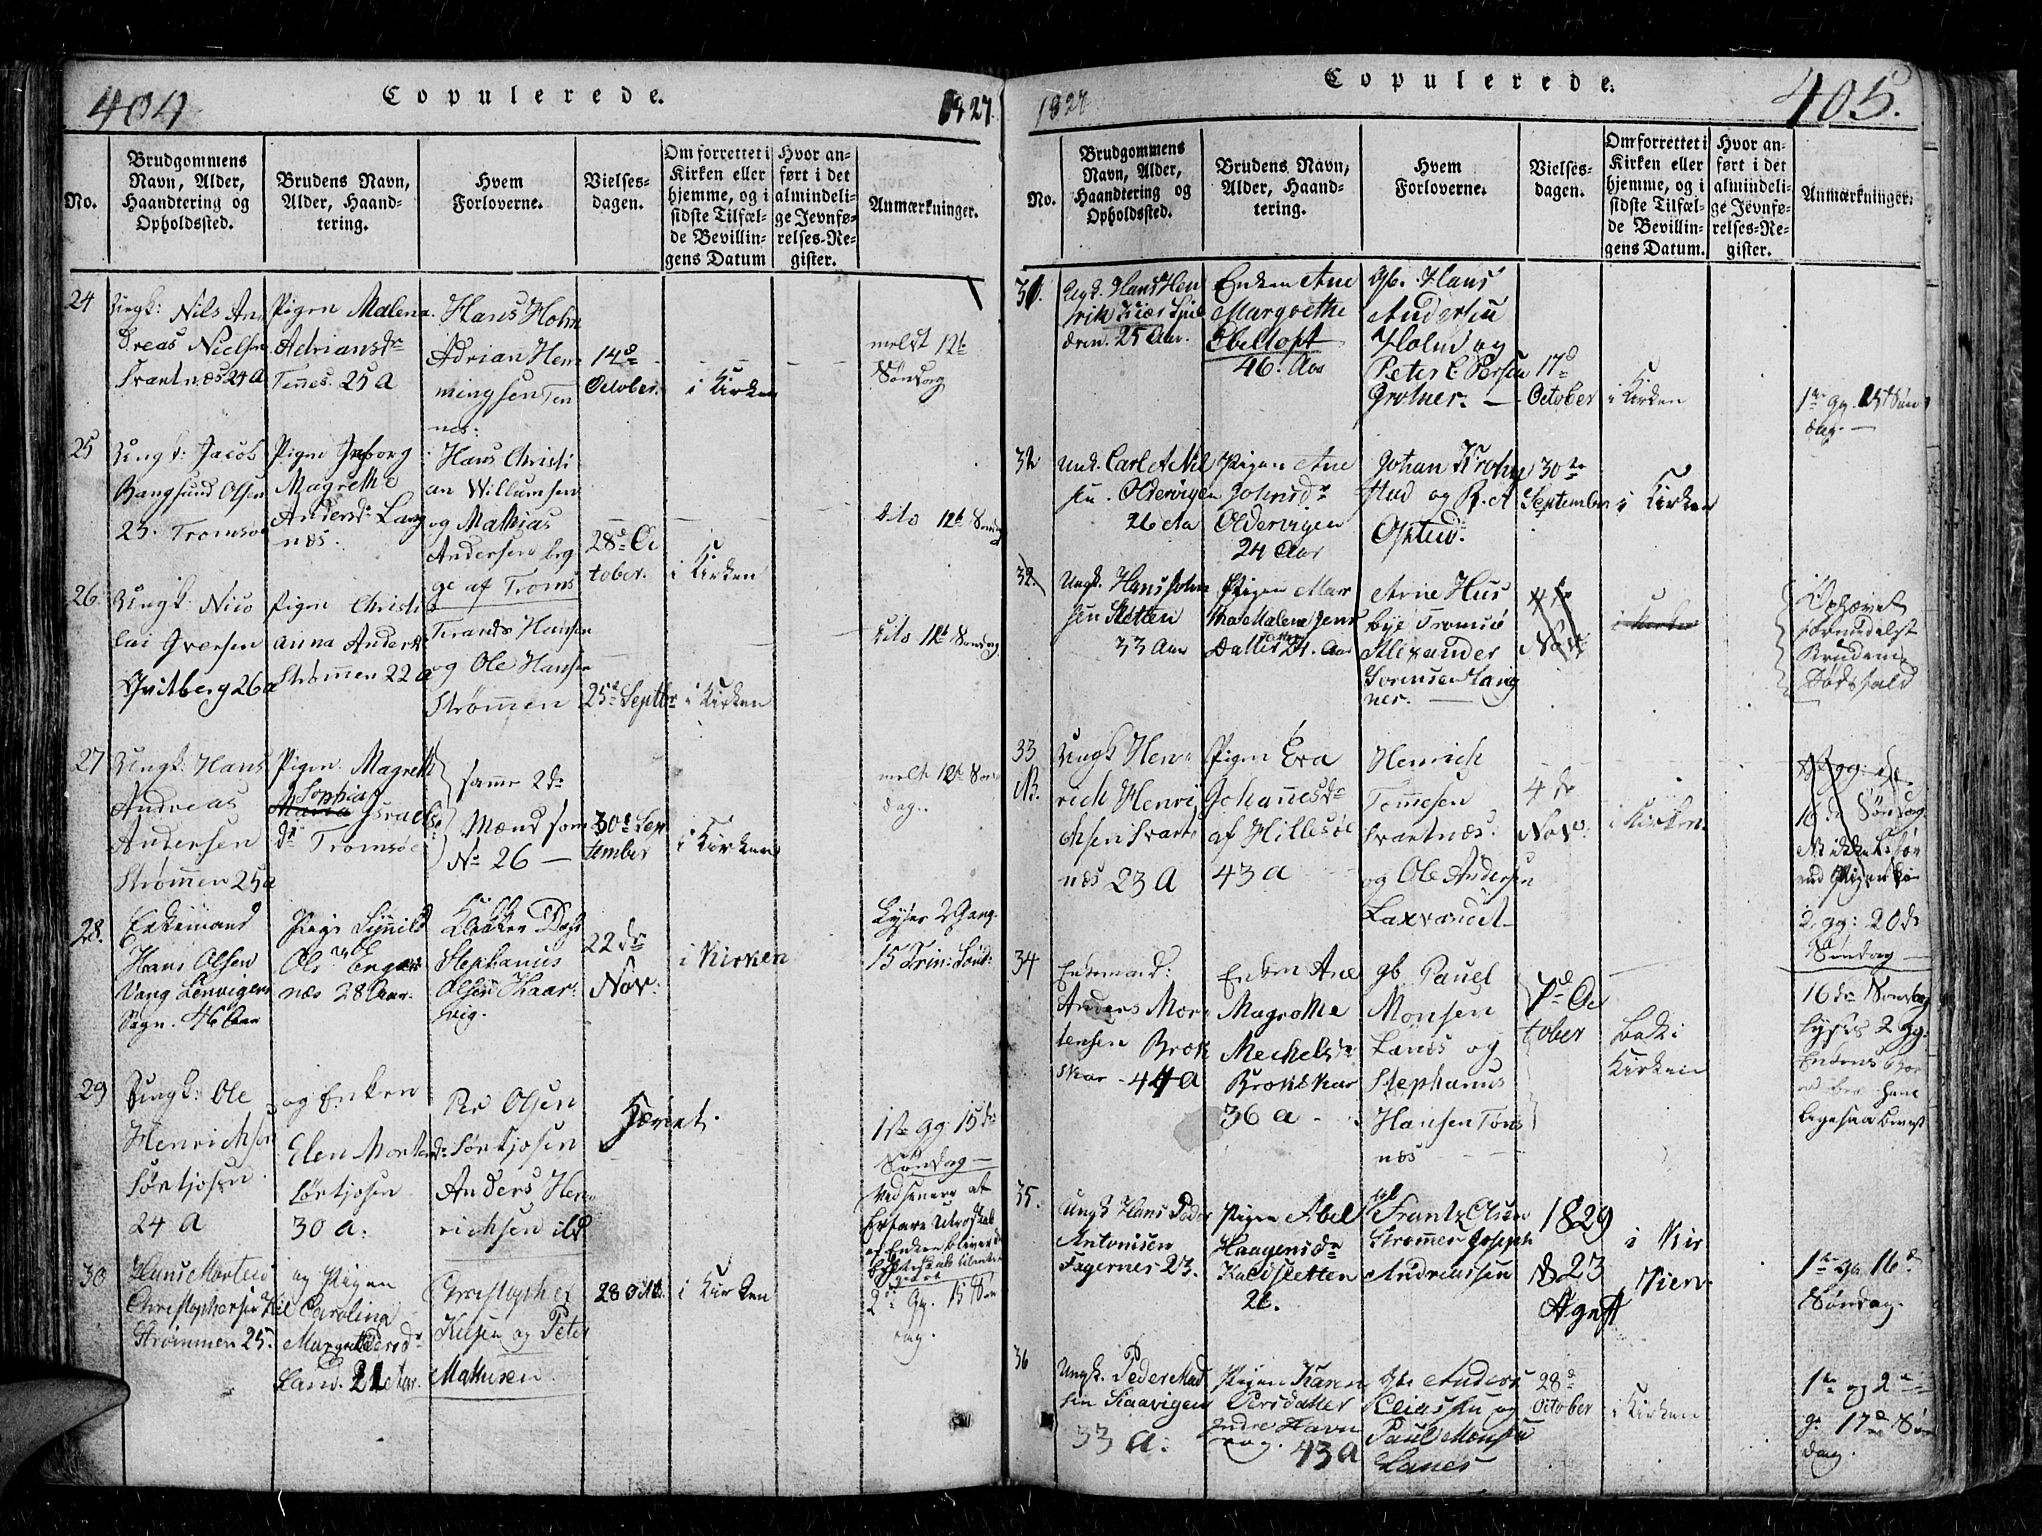 404
Copulerede.
1827.
No.
Brudgommens
Navn, Alder,
Haandtering og
Opholdssted.
Brudens Navn,
Alder, Haand-
tering.
Hvem
Forloverne.
Vielses-
dagen.
Om forrettet i
Kirken eller
hjemme, og i
sidste Tilfæl-
de Bevillin-
gens Datum
Hvor an-
ført i det
almindeli-
ge Jevnfø-
relses-Re-
gister.
Anmærkninger.
24
Ungk: Nils An
dreas Nielsen
Svartnæs 24 A
Pigen Malena
Adriansdr
Tennes. 25 A
Hans Holm
Adrian Hen
mingsen Ten
nes:
14d
October.
i Kirken
melst 12te
Søndag
25
Ungk: Jacob
Bangsund Olsen
23. Tromsøe
Pigen Ingborg
Magrethe
Andersdr Lang
næs.
Hans Christi
an Willumsen
og Mathias
Andersen beg
ge af Troms
28d Oc
tober.
i Kirken
dito 12te Søndag
26.
Ungk. Nico
lai Iversen
Qvitberg 26 a
Pigen Christi
anna Andersdr
Strømmen 22 a
Hansen
og Ole Hansen
Strømmen
25d Septbr
i Kirken
dito 12te Søndag
27
Ungk: Hans
Andreas
Andersen
Strømmen 25 a
Pigen Magreth
Sophia
Maria Israels
dr Tromsøe
samme 2de
Mænd som
No 26 —
30d Sep
tember
i Kirken
melst 12te Søn
dag..
28.
Enkemand
Hans Olsen
Vang Lenvigens
Sogn. 46 Aar
Pige
Olsdr
næs 28 Aar.
Klokker
Stephanus
Olsen Haar
vig.
22de
Nov:
i Kirken
Lyser 2 Gang.
15 Trin: Sønd:
29
Ungk: Ole
Henrichsen
Sørkjosen
24 A
og Enken
Elen Mortens
Sørkjosen
30 a.
Per Olsen
Sørkjosen
Anders Hen
richsen ibd
Hævet.
1ste gg: 15de
Søndag —
Ved senere at
Erfare
30
Hans Morten
Christophersen
Strømmen 25.
og Pigen
Carolina
Margrethe Pedersdr
Land. 21 Aar.
Christopher
Nilsen og Peter
Mathisen
28 Octb.
i Kirken
2de gg. 15de Søn
dag.
1827
Copulerede.
405.
No.
Brudgommens
Navn, Alder,
Haandtering og
Opholdssted.
Brudens Navn,
Alder, Haand-
tering.
Hvem
Forloverne.
Vielses-
dagen.
Om forrettet i
Kirken eller
hjemme, og i
sidste Tilfæl-
de Bevillin-
gens Datum.
Hvor an-
ført i det
almindeli-
ge Jevnfø-
relses-Re-
gister.
Anmærkninger.
31.
Ungk. Hans Hen
rik Kiær
25 Aar.
Enken Ane
Margrethe
Ebeltoft
46. Aar
gb. Hans
Andersen
Holm og
Peter E Persen
Grotnes. —
17d
October
i Kirken
1ste gg. 15de Søn
dag. —
32
Ungk. Carl A Nil
sen. Oldervigen
26 Aar
Pigen Ane
Johnsdr
Oldervigen
24 Aar
Johan Krohg
Hud og P. A
Opstud.
30te
September
i Kirken
32.
Ungk. Hans John
sen Sletten
33 Aar
Pigen Mar
tha Malena Jens
Datter 24. Aar
Arne Hus
bye Tromsøe
Alexander
Sørensen Lang
nes. —
4de
Nov:
i Kirken
Ophævet
formedelst
Brudens
Dødsfald
33
NB.
Ungk Hen
rich Henri
chsen Svart
næs 23 A
Pigen Eva
Johannesdr
af Hillesøe
43 a
Henrich
Tommesen
Svartnæs.
og Ole Andersen
Laxvandet
4de
Nov:
i Kirken.
16de Søndag.
2. gg: 20de
Søndag —
34
Enkemand:
Anders Mor
tensen Brok
skar - 44 a
Enken Ane
Magrethe
Mechelsdr
Brokskar
36 a
gb Pauel
Monsen
Lanes og
Stephanus
Hansen Tøns
næs
7d Oc
tober
Balsf:
Kirken
16de Søndag
Lyses 2 gg.
35.
Ungk Hans Peder
Antonisen
Fagernes 23.
Pigen Abel
Haagensdr
Kaldsletten
21.
Frantz Olsen
Strømmen Joseph
Andreassen
1829
d 23
Agust
i Kir
ken.
1ste gg. 16d
Søndag.
36
Ungk. Peder Mad
sen Skaavigen
33 a.
Pigen Karen
Persdatter
Indre Havn
vog. 43 a
gb Anders
Eliassen og
Paul Monsen
Lanes
28d
October
i Kirken
1ste og 2de
g: 17de Søn
dag.